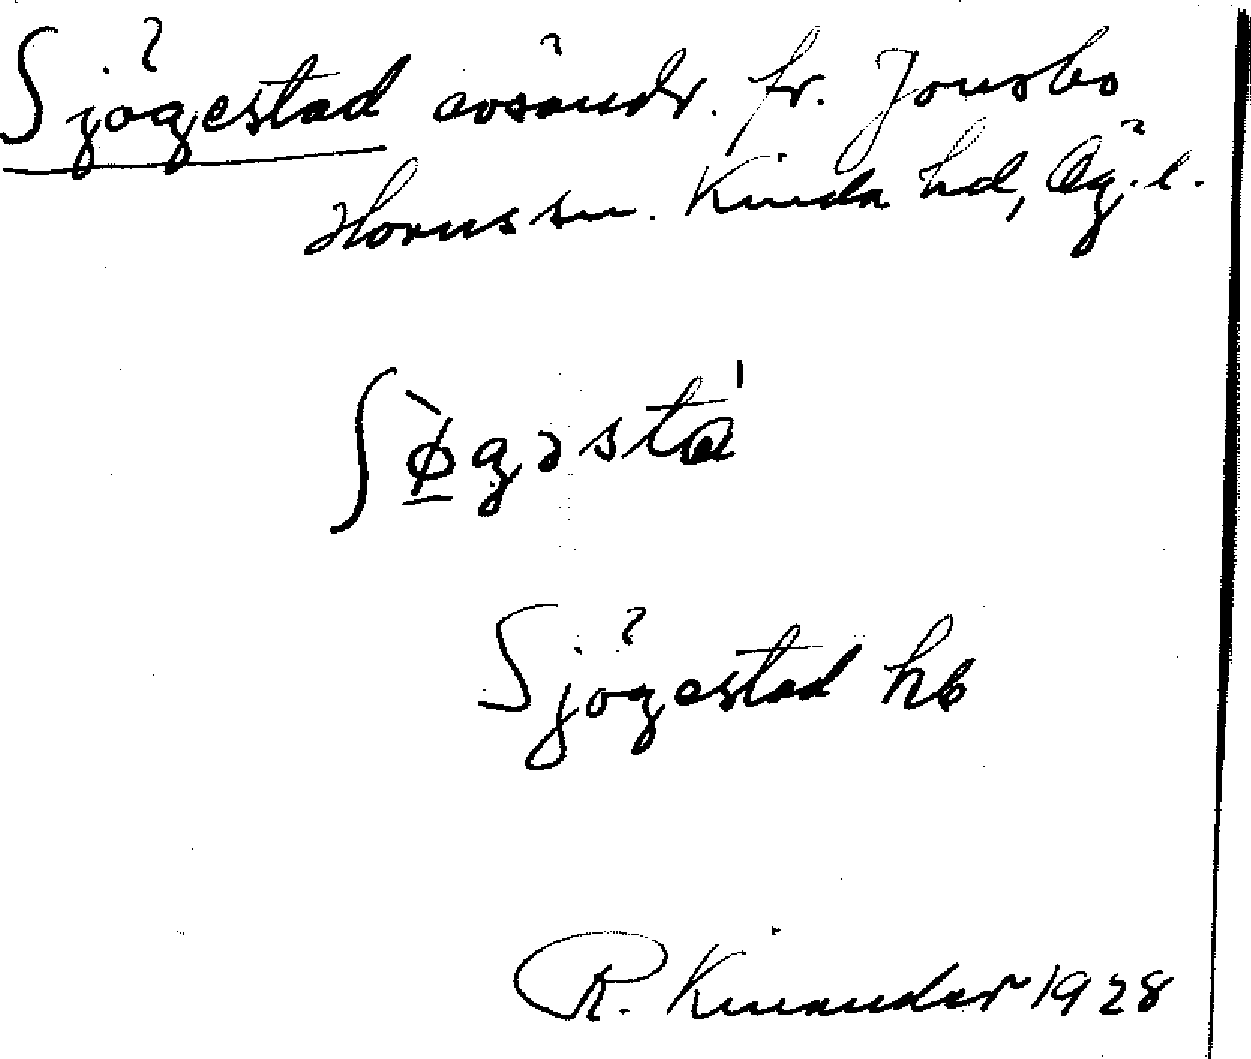 Sjögestad avsöndr. fr. Jonsbo
Horns sn. Kinda hd, Ög. l.
ʃø̀gəstɑ
Sjögestad hb
R. Kinander 1928